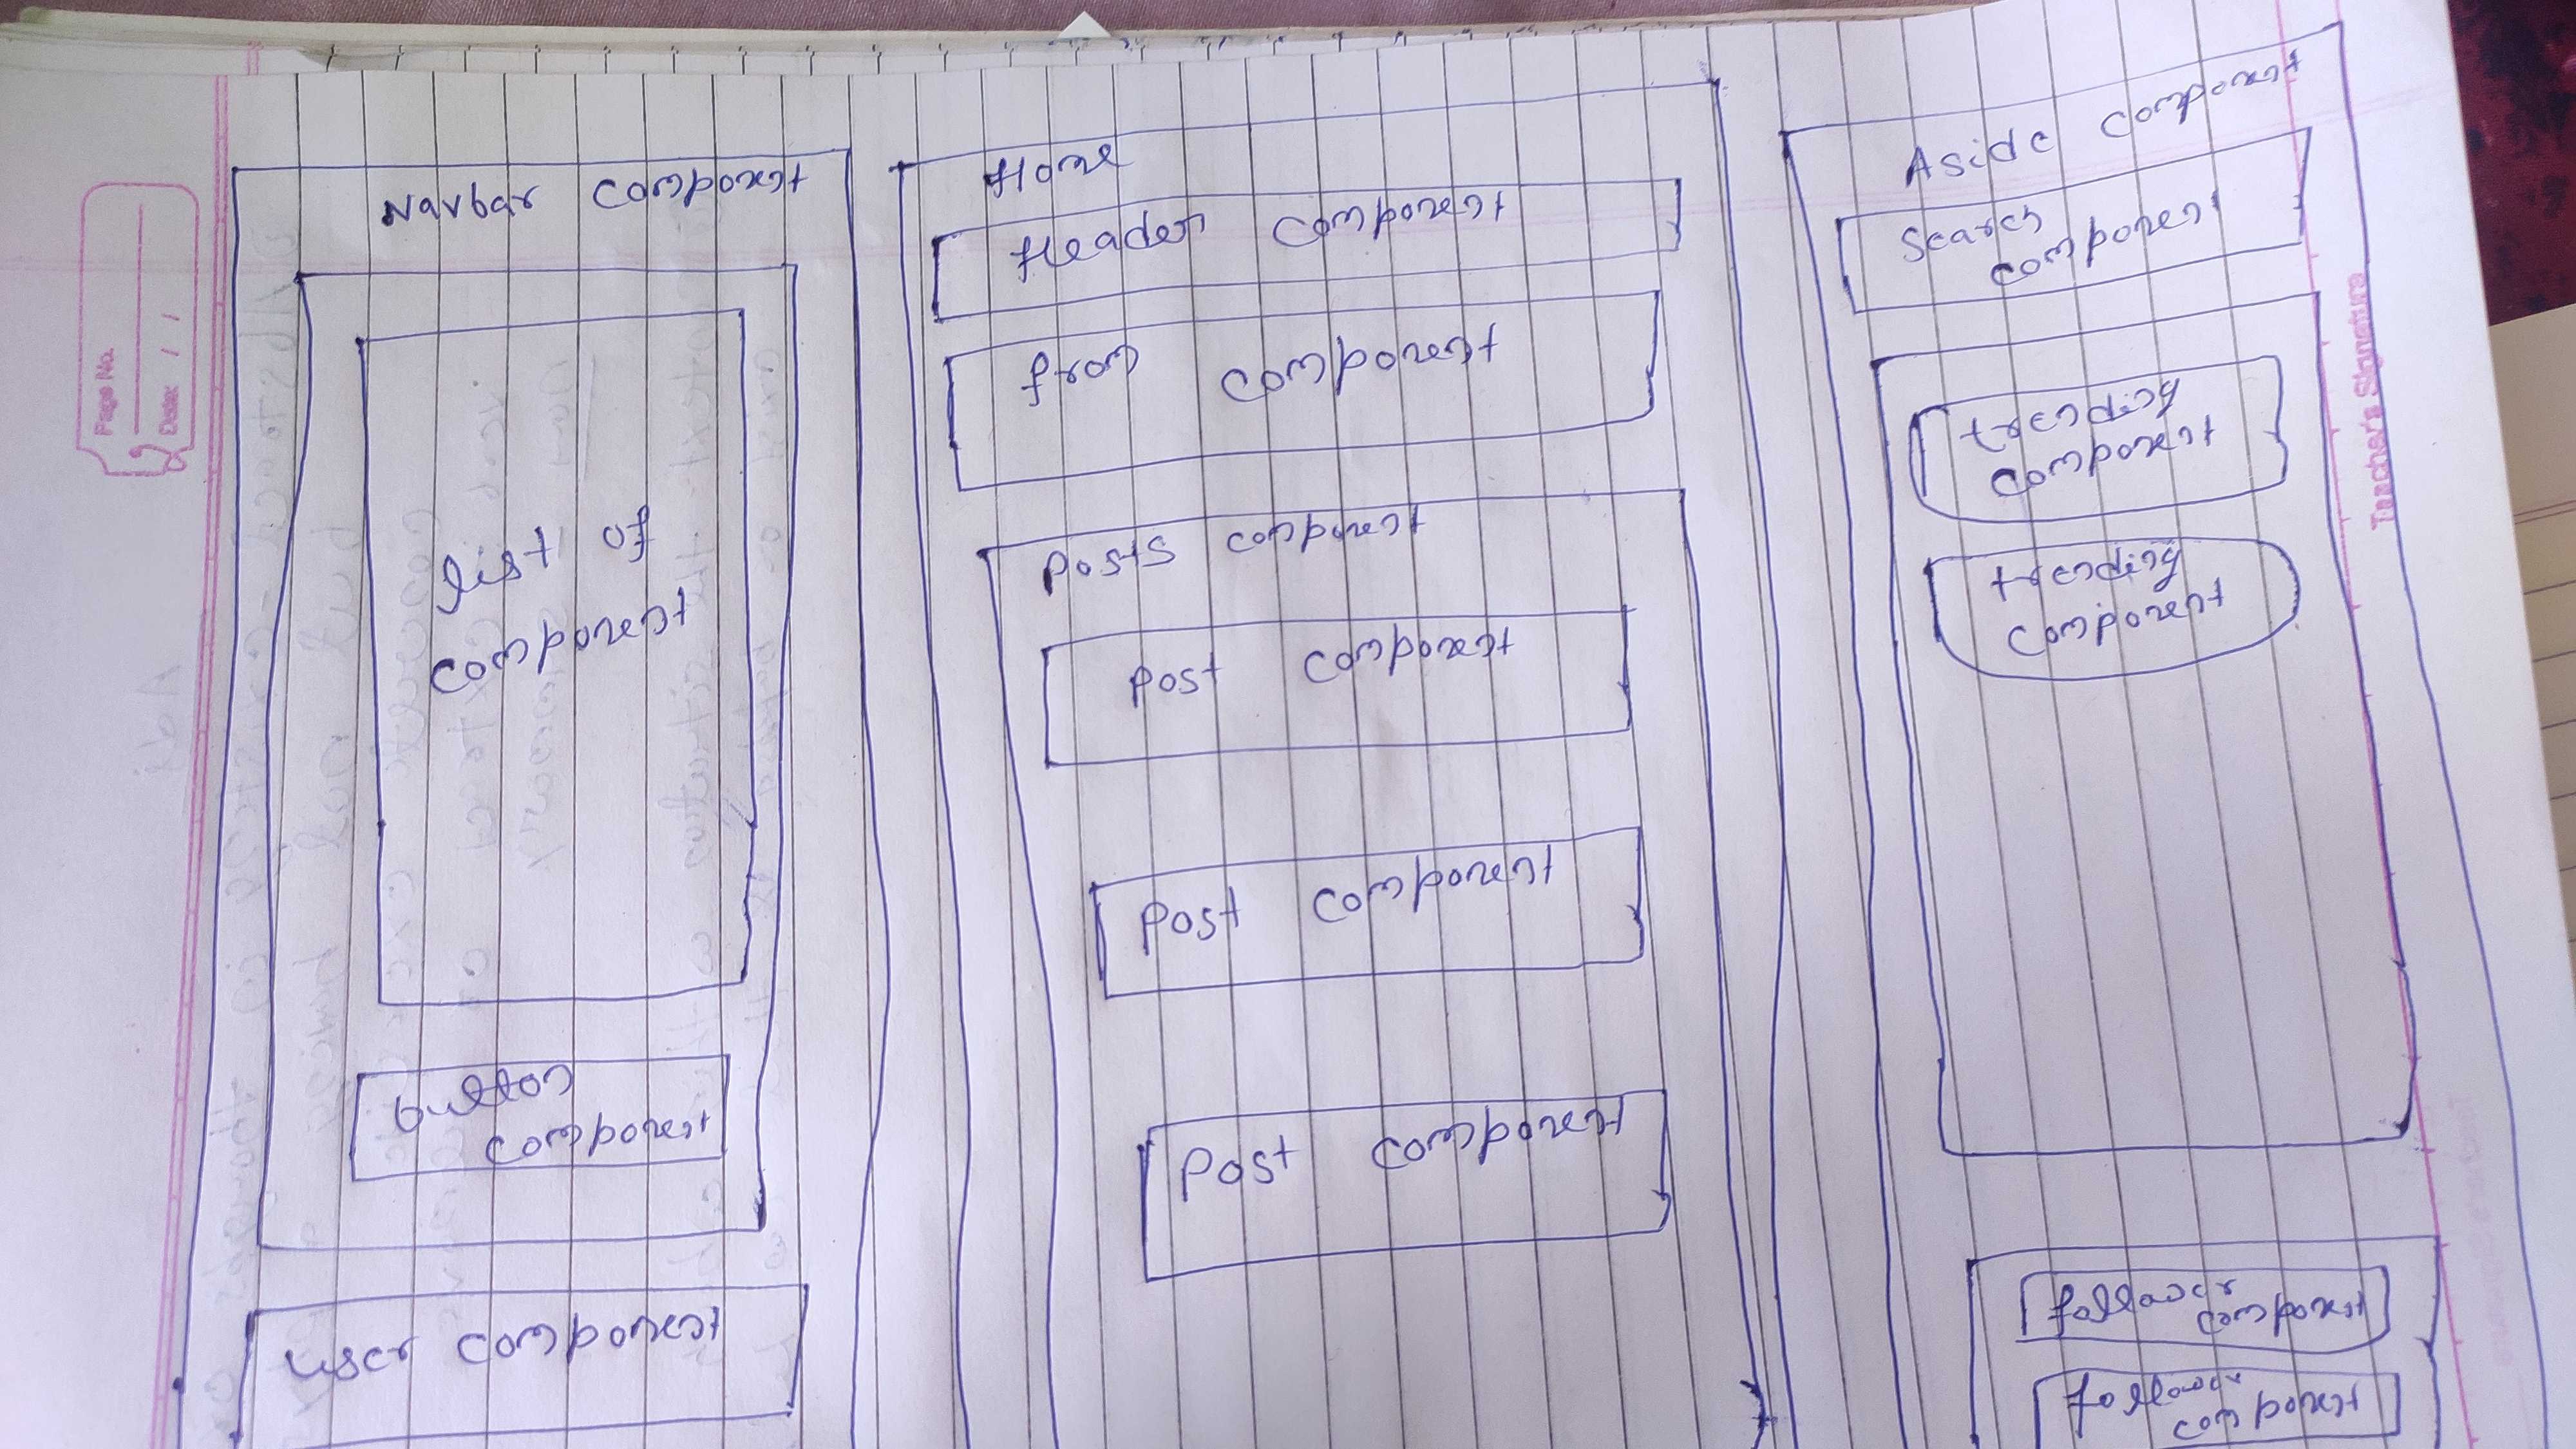 Page No.
Date: / /
Navbar Component
list of
component
button
component
user component
Home
Header component
from component
posts component
post component
post component
post component
Aside component
Search
component
trending
component
trending
component
follower
component
follower
component
Teacher's Signature